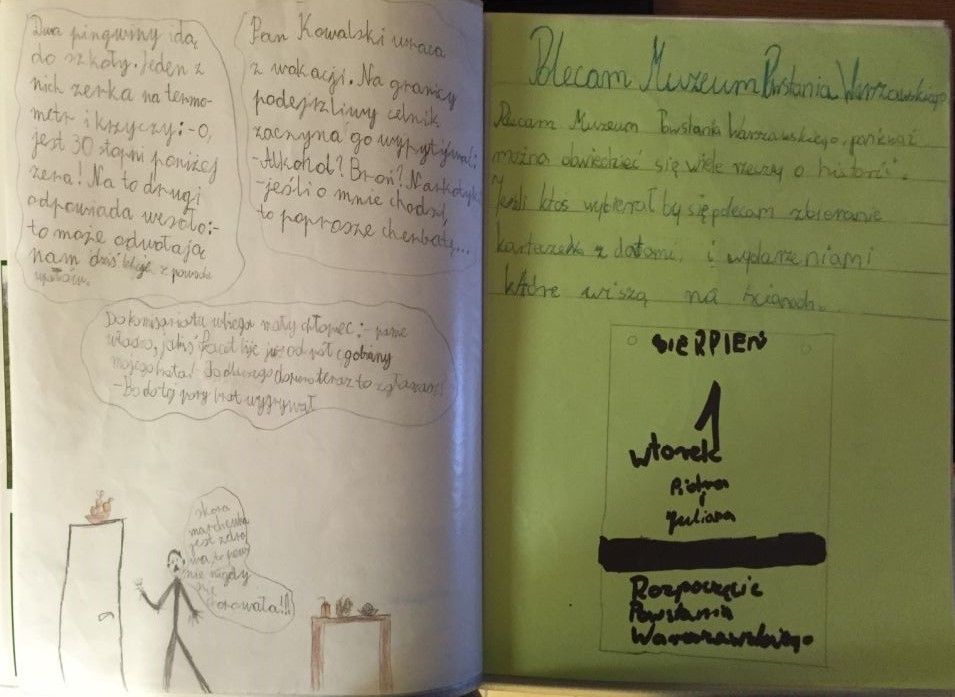 Dwa pingwiny idą
do szkoły. Jeden z
nich zerka na termo-
metr i krzyczy: -O,
jest 30 stopni poniżej
zera! Na to drugi
odpowiada wesoło:-
to może odwołają
nam dziś lekcje z powodu
upałów.
Pan Kowalski wraca
z wakacji. Na granicy
podejrzliwy celnik
zaczyna go wypytywać:
-Alkohol? Broń? Narkotyki
-jeśli o mnie chodzi,
to poproszę cherbatę...
Do komisariatu wbiega mały chłopiec:- panie
władzo, jakiś facet bije już od pół godziny
mojego brata! -To dlaczego dopiero teraz to zgłaszasz!
-Bo do tej pory brat wygrywał
skoro
marchewka
jest zdro
wa, to pow
nie nigdy
się
chorowała!!!
Polecam Muzeum Powstania Warszawskiego
Polecam Muzeum Powstania Warszawskiego, ponieważ
można dowiedzieć się wiele rzeczy o historii.
Jeśli ktoś wybierał by się polecam zbieranie
karteczek z datami, i wydarzeniami
które wiszą na ścianach.
SIERPIEŃ
1
wtorek
Piotra
i
Juliana
Rozpoczęcie
Powstania
Warszawskiego